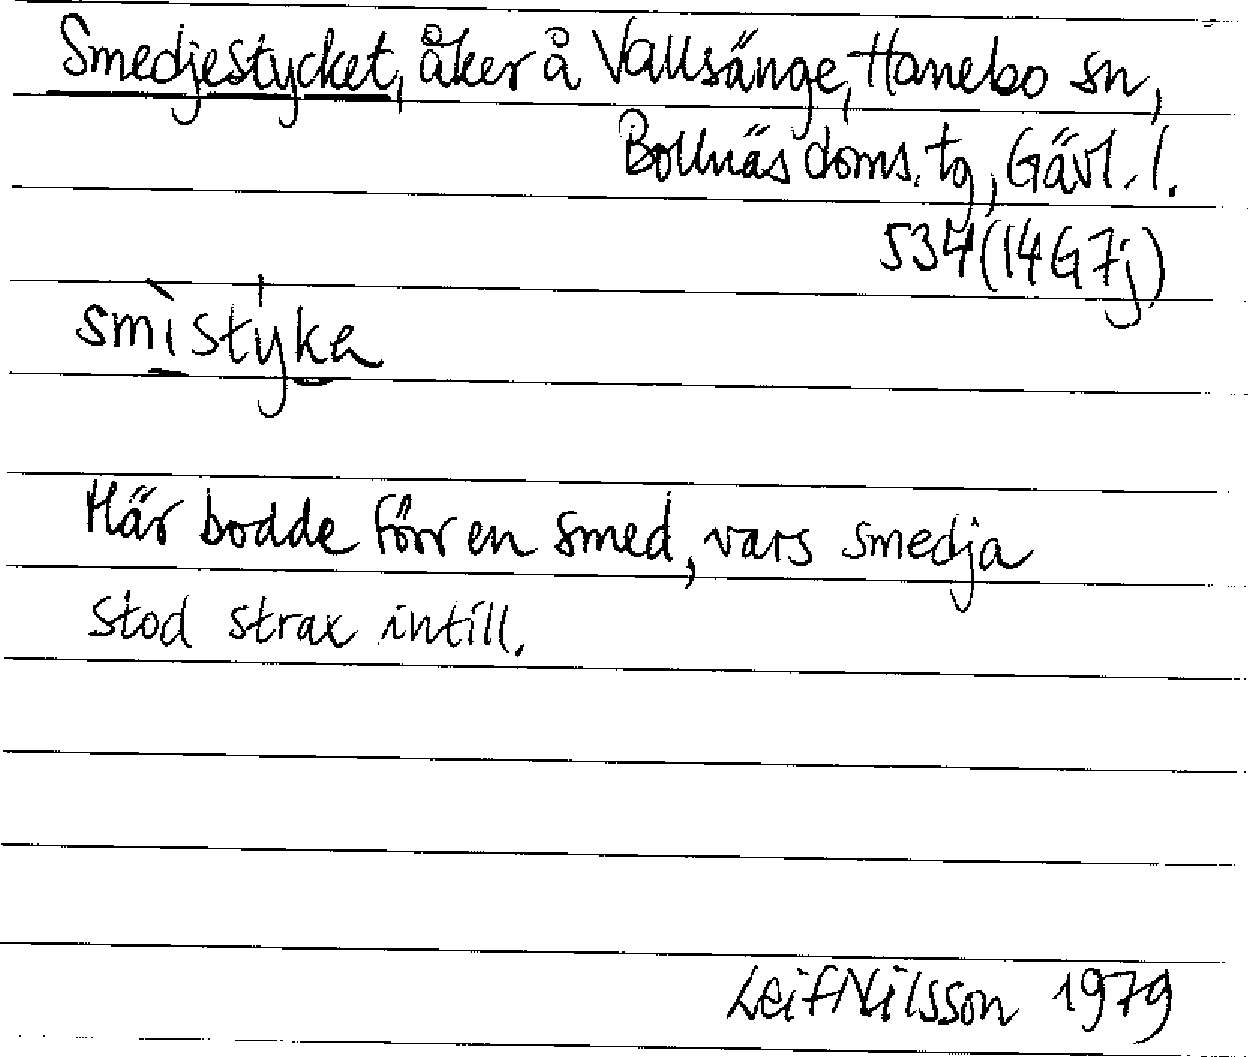 Smedjestycket, åker å Vallsänge, Hanebo sn,
Bollnäs doms. tg, Gävl. l.
534 (14G7j)
smìstýka
Här bodde förr en smed, vars smedja
stod strax intill.
Leif Nilsson 1979